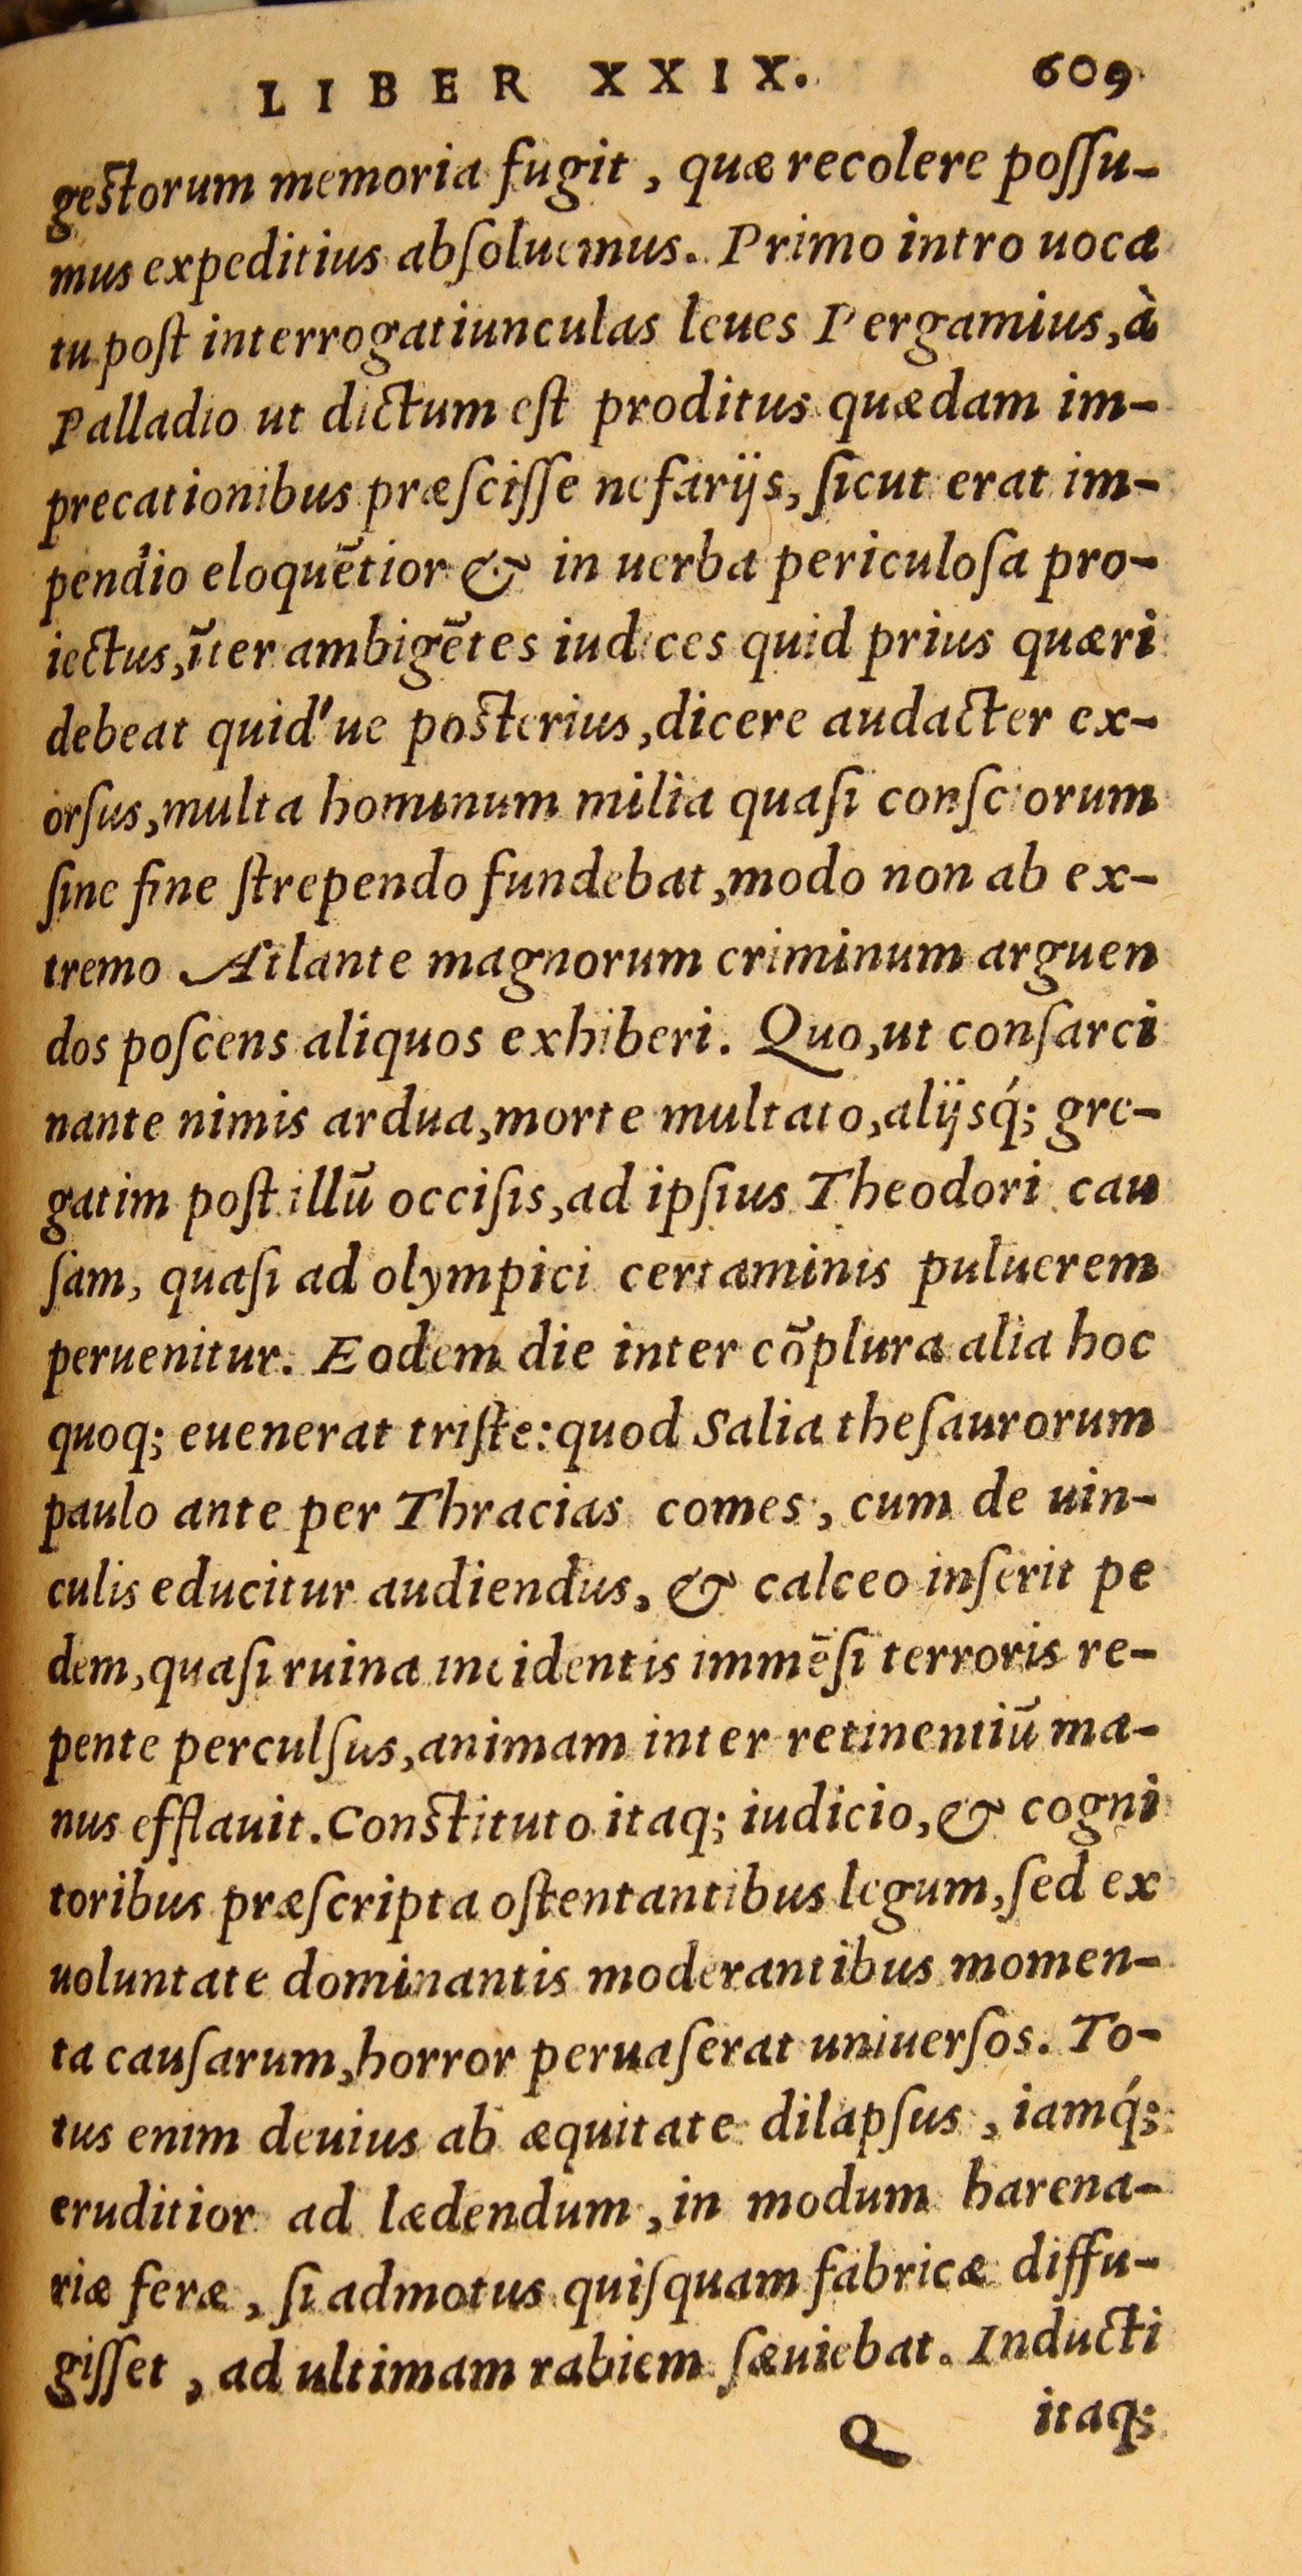 LIBER XXIX. 609
gestorum memoria fugit, quæ recolere possu-
mus expeditius absoluemus. Primo intro uoca
tu post interrogatiunculas leues Pergamius, à
Palladio ut dictum est proditus quædam im-
precationibus præscisse nefarijs, sicut erat im-
pendio eloquẽtior & in uerba periculosa pro-
iectus, ĩter ambigẽtes iudices quid prius quæri
debeat quid'ue posterius, dicere audacter ex-
orsus, multa hominum milia quasi consciorum
sine fine strependo fundebat, modo non ab ex-
tremo Atlante magnorum criminum arguen
dos poscens aliquos exhiberi. Quo, ut consarci
nante nimis ardua, morte multato, alijsq́; gre-
gatim post illũ occisis, ad ipsius Theodori cau
sam, quasi ad olympici certaminis puluerem
peruenitur. Eodem die inter cõplura alia hoc
quoq; euenerat triste: quod Salia thesaurorum
paulo ante per Thracias comes, cum de uin-
culis educitur audiendus, & calceo inserit pe
dem, quasi ruina incidentis immẽsi terroris re-
pente perculsus, animam inter retinentiũ ma-
nus efflauit. Constituto itaq; iudicio, & cogni
toribus præscripta ostentantibus legum, sed ex
uoluntate dominantis moderantibus momen-
ta causarum, horror peruaserat uniuersos. To-
tus enim deuius ab æquitate dilapsus, iamq́;
eruditior ad lædendum, in modum harena-
riæ feræ, si admotus quisquam fabricæ diffu-
gisset, ad ultimam rabiem sæuiebat. Inducti
Q itaq;